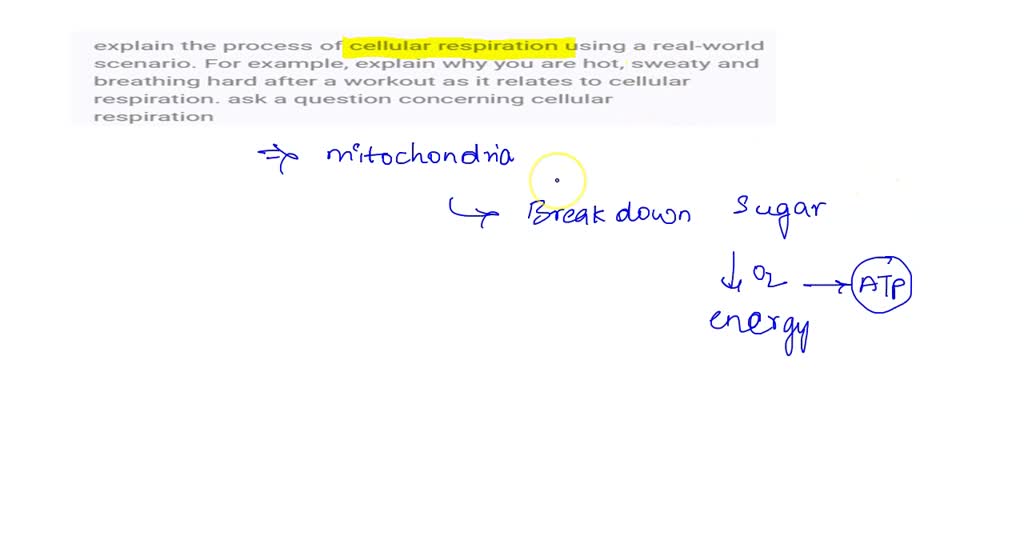 explain the process of cellular respiration using a real-world
scenario. For example, explain why you are hot, sweaty and
breathing hard after a workout as it relates to cellular
respiration. ask a question concerning cellular
respiration
⇒ mitochondria
↳ Breakdown sugar
↓ O2 → ATP
energy